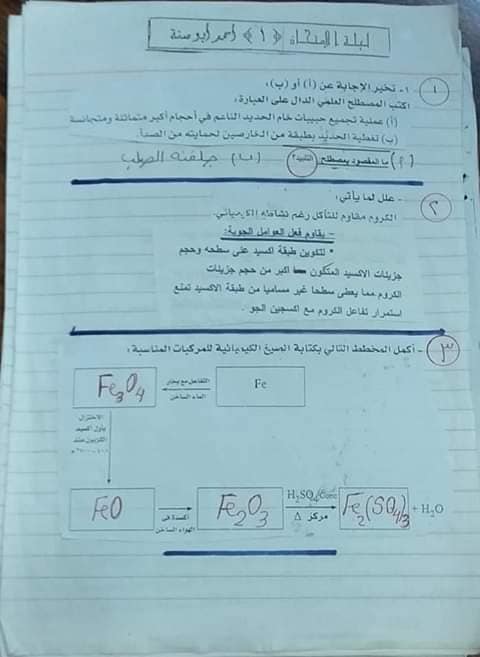 ليلة الامتحان (١) احمد ابو سنة
١
١- تخير الإجابة عن (أ) أو (ب):
اكتب المصطلح العلمي الدال على العبارة:
(أ) عملية تجميع حبيبات خام الحديد الناعم في أحجام أكبر متماثلة ومتجانسة
(ب) تغطية الحديد بطبقة من الخارصين لحمايته من الصدأ.
(أ) ما المقصود بمصطلح التلبيد؟ (ب) جلفنة الصلب
٢
- علل لما يأتي:
الكروم مقاوم للتآكل رغم نشاطه الكيميائي.
- يقاوم فعل العوامل الجوية:
* لتكوين طبقة أكسيد على سطحه وحجم
جزيئات الاكسيد المتكون اكبر من حجم جزيئات
الكروم مما يعطى سطحا غير مساميا من طبقة الاكسيد تمنع
استمرار تفاعل الكروم مع اكسجين الجو.
٣
- أكمل المخطط التالي بكتابة الصيغ الكيميائية للمركبات المناسبة:
Fe
التفاعل مع بخار
الماء الساخن
Fe3O4
الاختزال
بأول أكسيد
الكربون عند
FeO
أكسدة في
الهواء الساخن
Fe2O3
H2SO4/Conc
Δ مركز
Fe2(SO4)3 + H2O